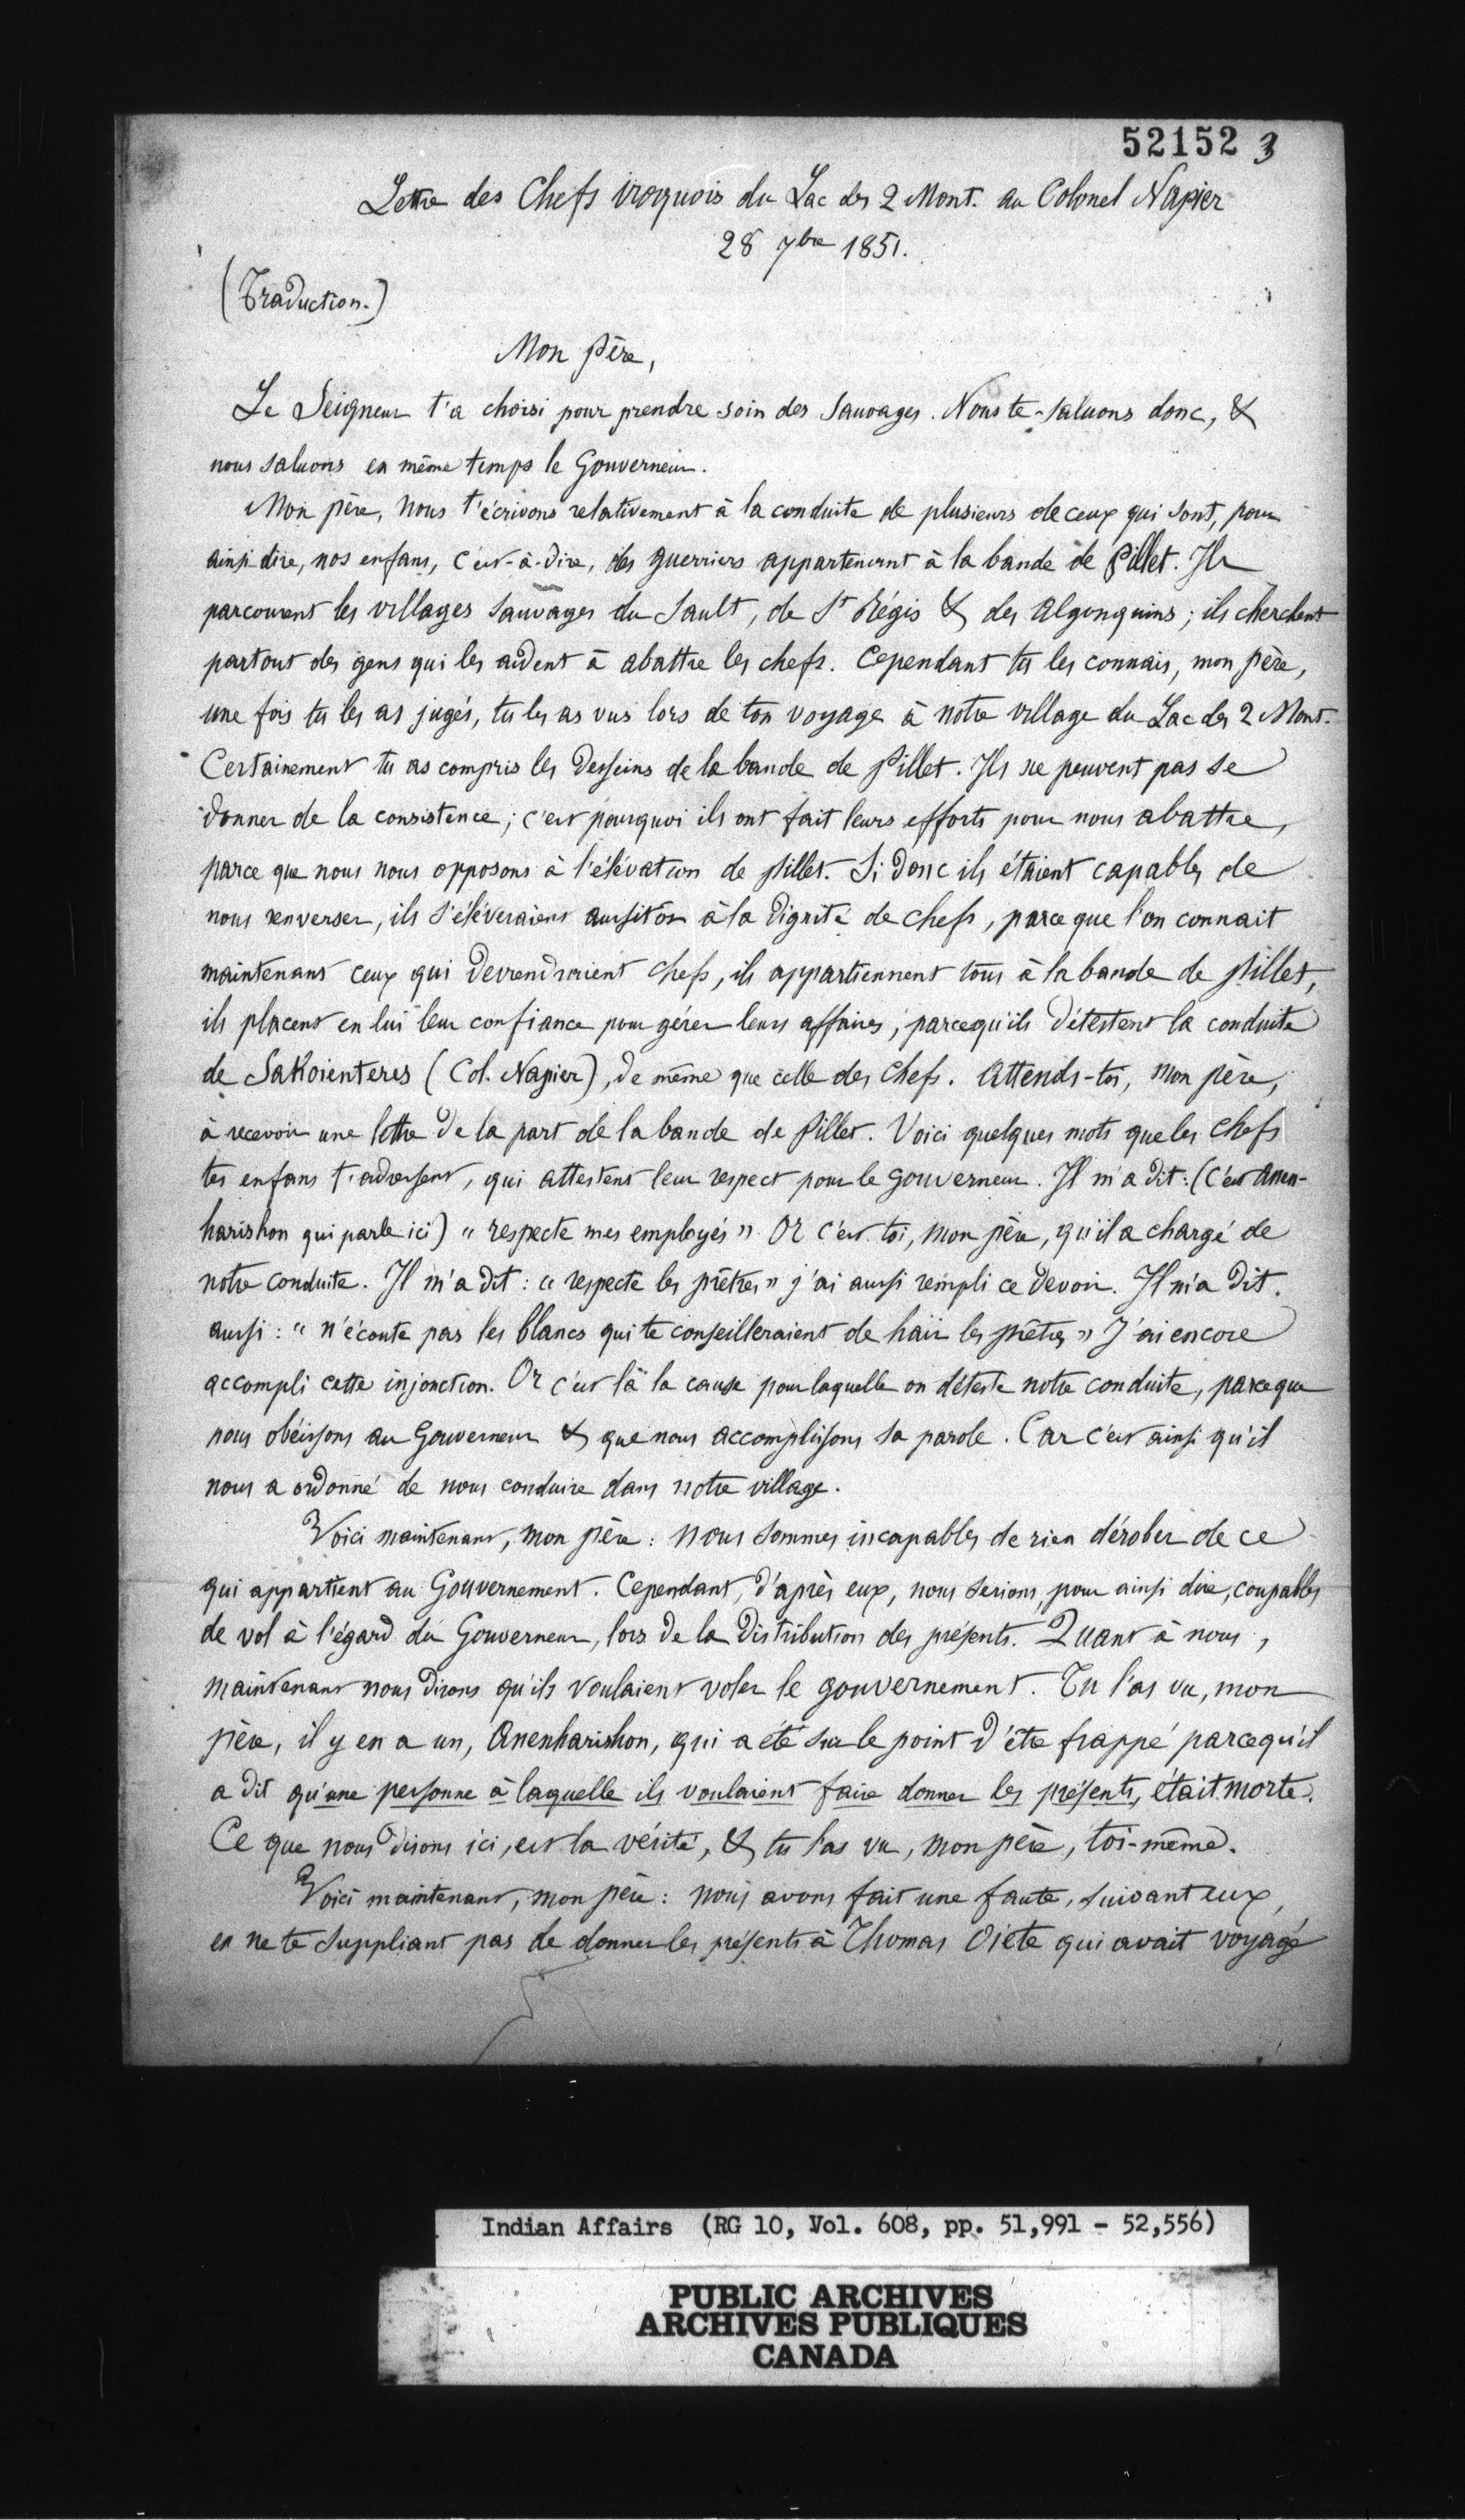 52152 3
Lettre des Chefs iroquois du Lac des 2 Mont. au Colonel Napier
28 7bre 1851.
(Traduction.)
Mon père,
Le Seigneur t'a choisi pour prendre soin des Sauvages. Nous te saluons donc, &
nous saluons en même temps le Gouverneur.
Mon père, nous t'écrivons relativement à la conduite de plusieurs de ceux qui sont, pour
ainsi dire, nos enfans, c'est-à-dire, des guerriers appartenant à la bande de Pillet. Ils
parcourent les villages sauvages du Sault, de St Régis & des Algonquins; ils cherchent
partout des gens qui les aident à abattre les chefs. Cependant tu les connais, mon père,
une fois tu les as jugés, tu les as vus lors de ton voyage à notre village du Lac des 2 Mont.
Certainement tu as compris les desseins de la bande de Pillet. Ils ne peuvent pas se
donner de la consistence; c'est pourquoi ils ont fait leurs efforts pour nous abattre,
parce que nous nous opposons à l'élévation de Pillet. Si donc ils étaient capables de
nous renverser, ils s'éléveraient aussitôt à la dignité de chefs, parce que l'on connait
maintenant ceux qui deviendraient chefs, ils appartiennent tous à la bande de Pillet,
ils placent en lui leur confiance pour gérer leurs affaires, parcequ'ils détestent la conduite
de Sakoienteres (Col. Napier), de même que celle des chefs. Attends-toi, mon père,
à recevoir une lettre de la part de la bande de Pillet. Voici quelques mots que les chefs
tes enfans t'adressent, qui attestent leur respect pour le gouverneur. Il m'a dit: (C'est Anen-
harishon qui parle ici) « respecte mes employés » Or c'est toi, mon père, qu'il a chargé de
notre conduite. Il m'a dit: « respecte les prêtres » j'ai aussi rempli ce devoir. Il m'a dit
aussi: « n'écoute pas les blancs qui te conseilleraient de haïr les prêtres » J'ai encore
accompli cette injonction. Or c'est là la cause pour laquelle on déteste notre conduite, parceque
nous obéissons au Gouverneur & que nous accomplissons sa parole. Car c'est ainsi qu'il
nous a ordonné de nous conduire dans notre village.
Voici maintenant, mon père: nous sommes incapables de rien dérober de ce
qui appartient au Gouvernement. Cependant, d'après eux, nous serions, pour ainsi dire, coupables
de vol à l'égard du Gouverneur, lors de la distribution des présents. Quant à nous,
maintenant nous disons qu'ils voulaient voler le gouvernement. Tu l'as vu, mon
père, il y en a un, Anenharishon, qui a été sur le point d'être frappé parcequ'il
a dit qu'une personne à laquelle ils voulaient faire donner les présents, était morte.
Ce que nous disons ici, est la vérité, & tu l'as vu, mon père, toi-même.
Voici maintenant, mon père: nous avons fait une faute, suivant eux,
en ne te suppliant pas de donner les présents à Thomas Oiete qui avait voyagé
Indian Affairs (RG 10, Vol. 608, pp. 51,991 - 52,556)
PUBLIC ARCHIVES
ARCHIVES PUBLIQUES
CANADA